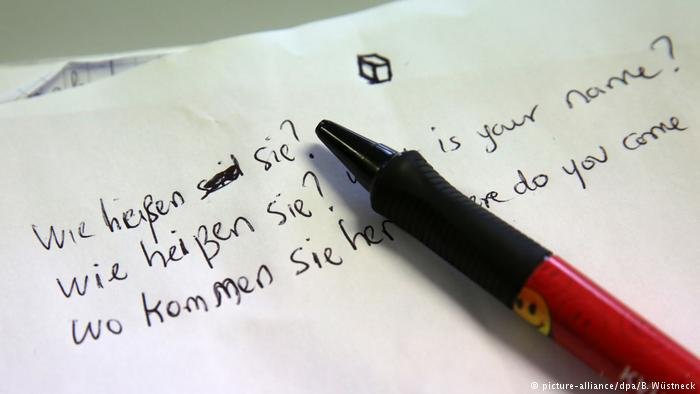 Wie heißen sie?
Wie heißen sie? is your name?
Wo kommen sie her do you come
© picture-alliance/dpa/B. Wüstneck